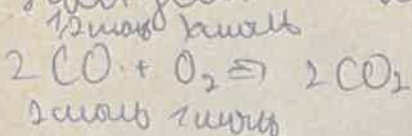 1,2 моль x моль
2 CO + O₂ ⇒ 2 CO₂
2 моль 1 моль